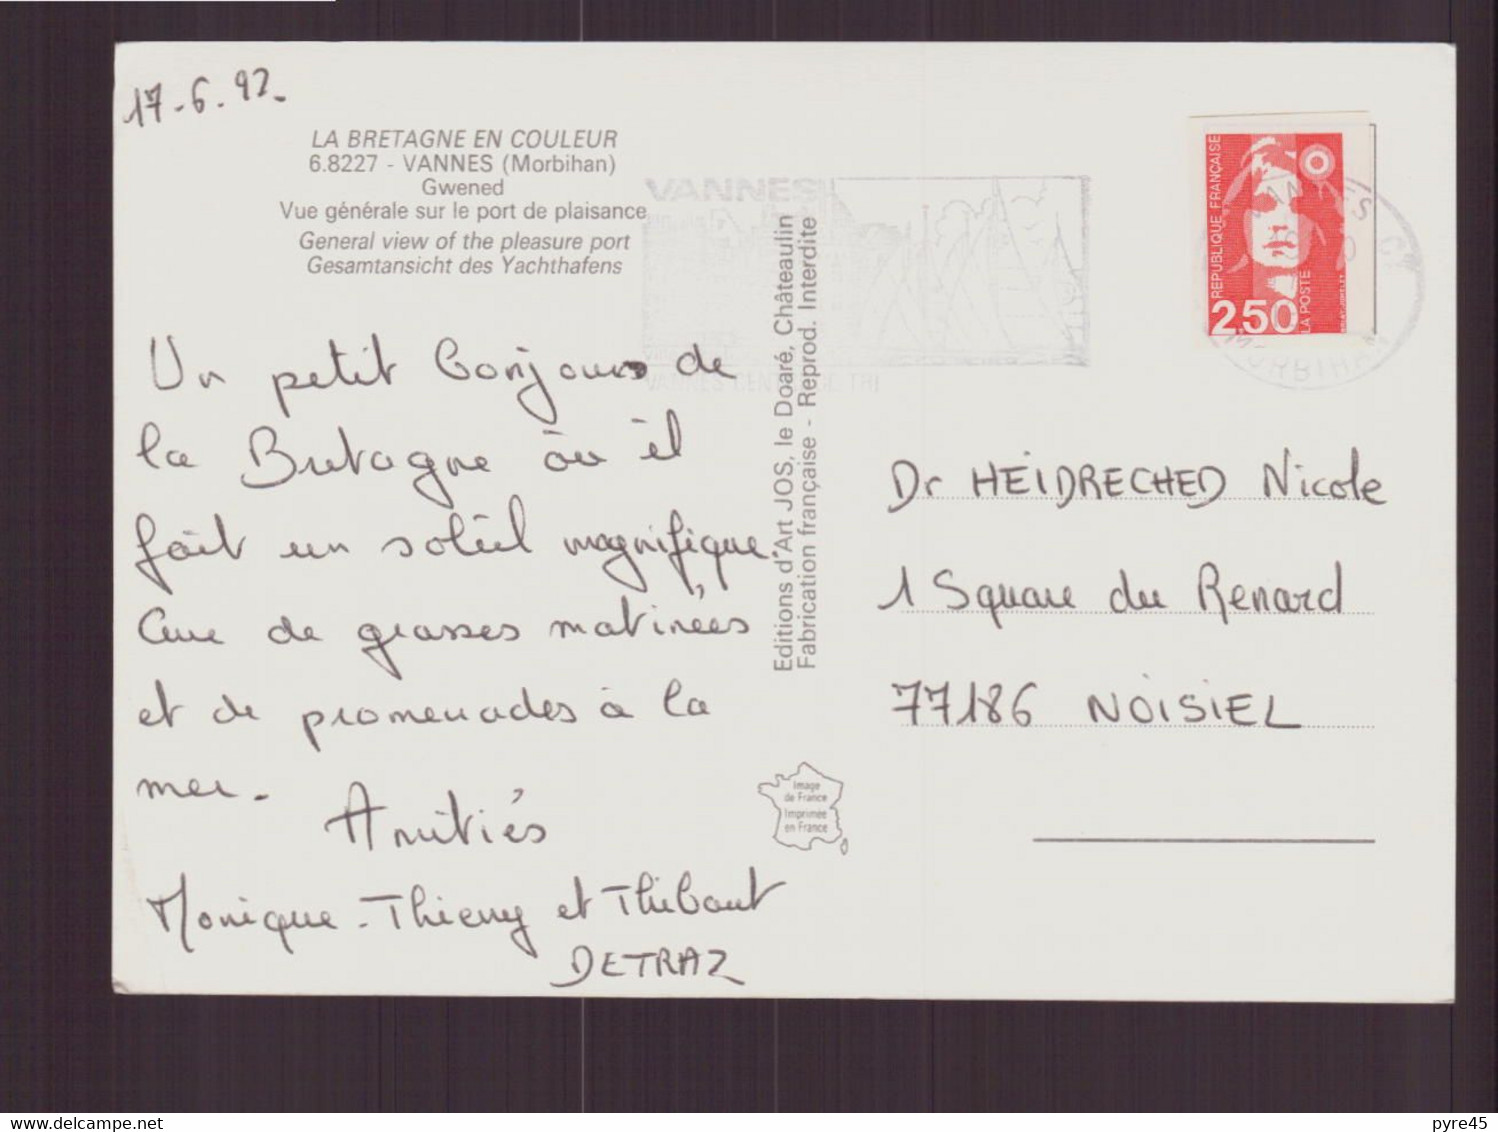 17-6-92-
LA BRETAGNE EN COULEUR
6.8227 - VANNES (Morbihan)
Gwened
Vue générale sur le port de plaisance
General view of the pleasure port
Gesamtansicht des Yachthafens
Un petit bonjour de
la Bretagne où il
fait un soleil magnifique.
Cure de grasses matinées
et de promenades à la
mer.
Amitiés
Monique - Thierry et Thibaut
DETRAZ
VANNES
VANNES CENTRE DE TRI
Editions d'Art JOS, le Doaré, Châteaulin
Fabrication française - Reprod. Interdite
Image
de France
Imprimée
en France
REPUBLIQUE FRANÇAISE
2,50
LA POSTE
VANNES
MORBIHAN
Dr HEIDRECHED Nicole
1 Square du Renard
77186 NOISIEL
delcampe.net
pyre45